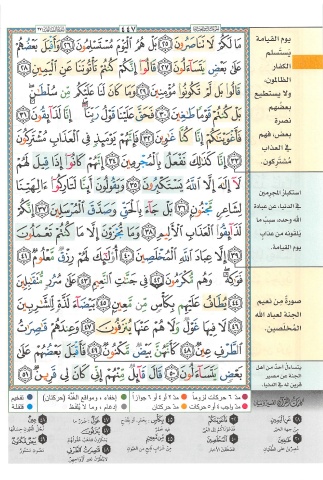 ٤٤٧
مَا لَكُمْ لَا تَنَاصَرُونَ ٢٥ بَلْ هُمُ الْيَوْمَ مُسْتَسْلِمُونَ ٢٦ وَأَقْبَلَ بَعْضُهُمْ
عَلَىٰ بَعْضٍ يَتَسَاءَلُونَ ٢٧ قَالُوا إِنَّكُمْ كُنتُمْ تَأْتُونَنَا عَنِ الْيَمِينِ ٢٨
قَالُوا بَل لَّمْ تَكُونُوا مُؤْمِنِينَ ٢٩ وَمَا كَانَ لَنَا عَلَيْكُم مِّن سُلْطَٰنٍۭ
بَلْ كُنتُمْ قَوْمًا طَٰغِينَ ٣٠ فَحَقَّ عَلَيْنَا قَوْلُ رَبِّنَا إِنَّا لَذَائِقُونَ ٣١
فَأَغْوَيْنَٰكُمْ إِنَّا كُنَّا غَٰوِينَ ٣٢ فَإِنَّهُمْ يَوْمَئِذٍ فِي الْعَذَابِ مُشْتَرِكُونَ
٣٣ إِنَّا كَذَٰلِكَ نَفْعَلُ بِالْمُجْرِمِينَ ٣٤ إِنَّهُمْ كَانُوا إِذَا قِيلَ لَهُمْ
لَا إِلَٰهَ إِلَّا اللَّهُ يَسْتَكْبِرُونَ ٣٥ وَيَقُولُونَ أَئِنَّا لَتَارِكُوا آلِهَتِنَا
لِشَاعِرٍ مَّجْنُونٍ ٣٦ بَلْ جَاءَ بِالْحَقِّ وَصَدَّقَ الْمُرْسَلِينَ ٣٧ إِنَّكُمْ
لَذَائِقُوا الْعَذَابِ الْأَلِيمِ ٣٨ وَمَا تُجْزَوْنَ إِلَّا مَا كُنتُمْ تَعْمَلُونَ ٣٩
إِلَّا عِبَادَ اللَّهِ الْمُخْلَصِينَ ٤٠ أُولَٰئِكَ لَهُمْ رِزْقٌ مَّعْلُومٌ ٤١
فَوَٰكِهُ وَهُم مُّكْرَمُونَ ٤٢ فِي جَنَّٰتِ النَّعِيمِ ٤٣ عَلَىٰ سُرُرٍ مُّتَقَٰبِلِينَ
٤٤ يُطَافُ عَلَيْهِم بِكَأْسٍ مِّن مَّعِينٍۭ ٤٥ بَيْضَاءَ لَذَّةٍ لِّلشَّٰرِبِينَ
٤٦ لَا فِيهَا غَوْلٌ وَلَا هُمْ عَنْهَا يُنزَفُونَ ٤٧ وَعِندَهُمْ قَٰصِرَٰتُ
الطَّرْفِ عِينٌ ٤٨ كَأَنَّهُنَّ بَيْضٌ مَّكْنُونٌ ٤٩ فَأَقْبَلَ بَعْضُهُمْ عَلَىٰ
بَعْضٍ يَتَسَاءَلُونَ ٥٠ قَالَ قَائِلٌ مِّنْهُمْ إِنِّي كَانَ لِي قَرِينٌ ٥١
يوم القيامة
يَستسلم
الكفار
الظالمون،
ولا يستطيع
بعضهم
نصرة
بعض، فهم
في العذاب
مُشتركون.
استكبارُ المجرمين
في الدنيا، عن عبادة
الله وحده، سببُ ما
يلقونه من عذاب
يوم القيامة.
صورة من نعيم
الجنة لعباد الله
المُخلصين.
مدّ ٦ حركات لزوماً
مدّ ٢ أو ٤ أو ٦ جوازاً
إخفاء، ومواقع الغُنَّة (حركتان)
تفخيم
مدّ واجب ٤ أو ٥ حركات
مدّ حركتان
إدغام، وما لا يُلفَظ
قلقلة